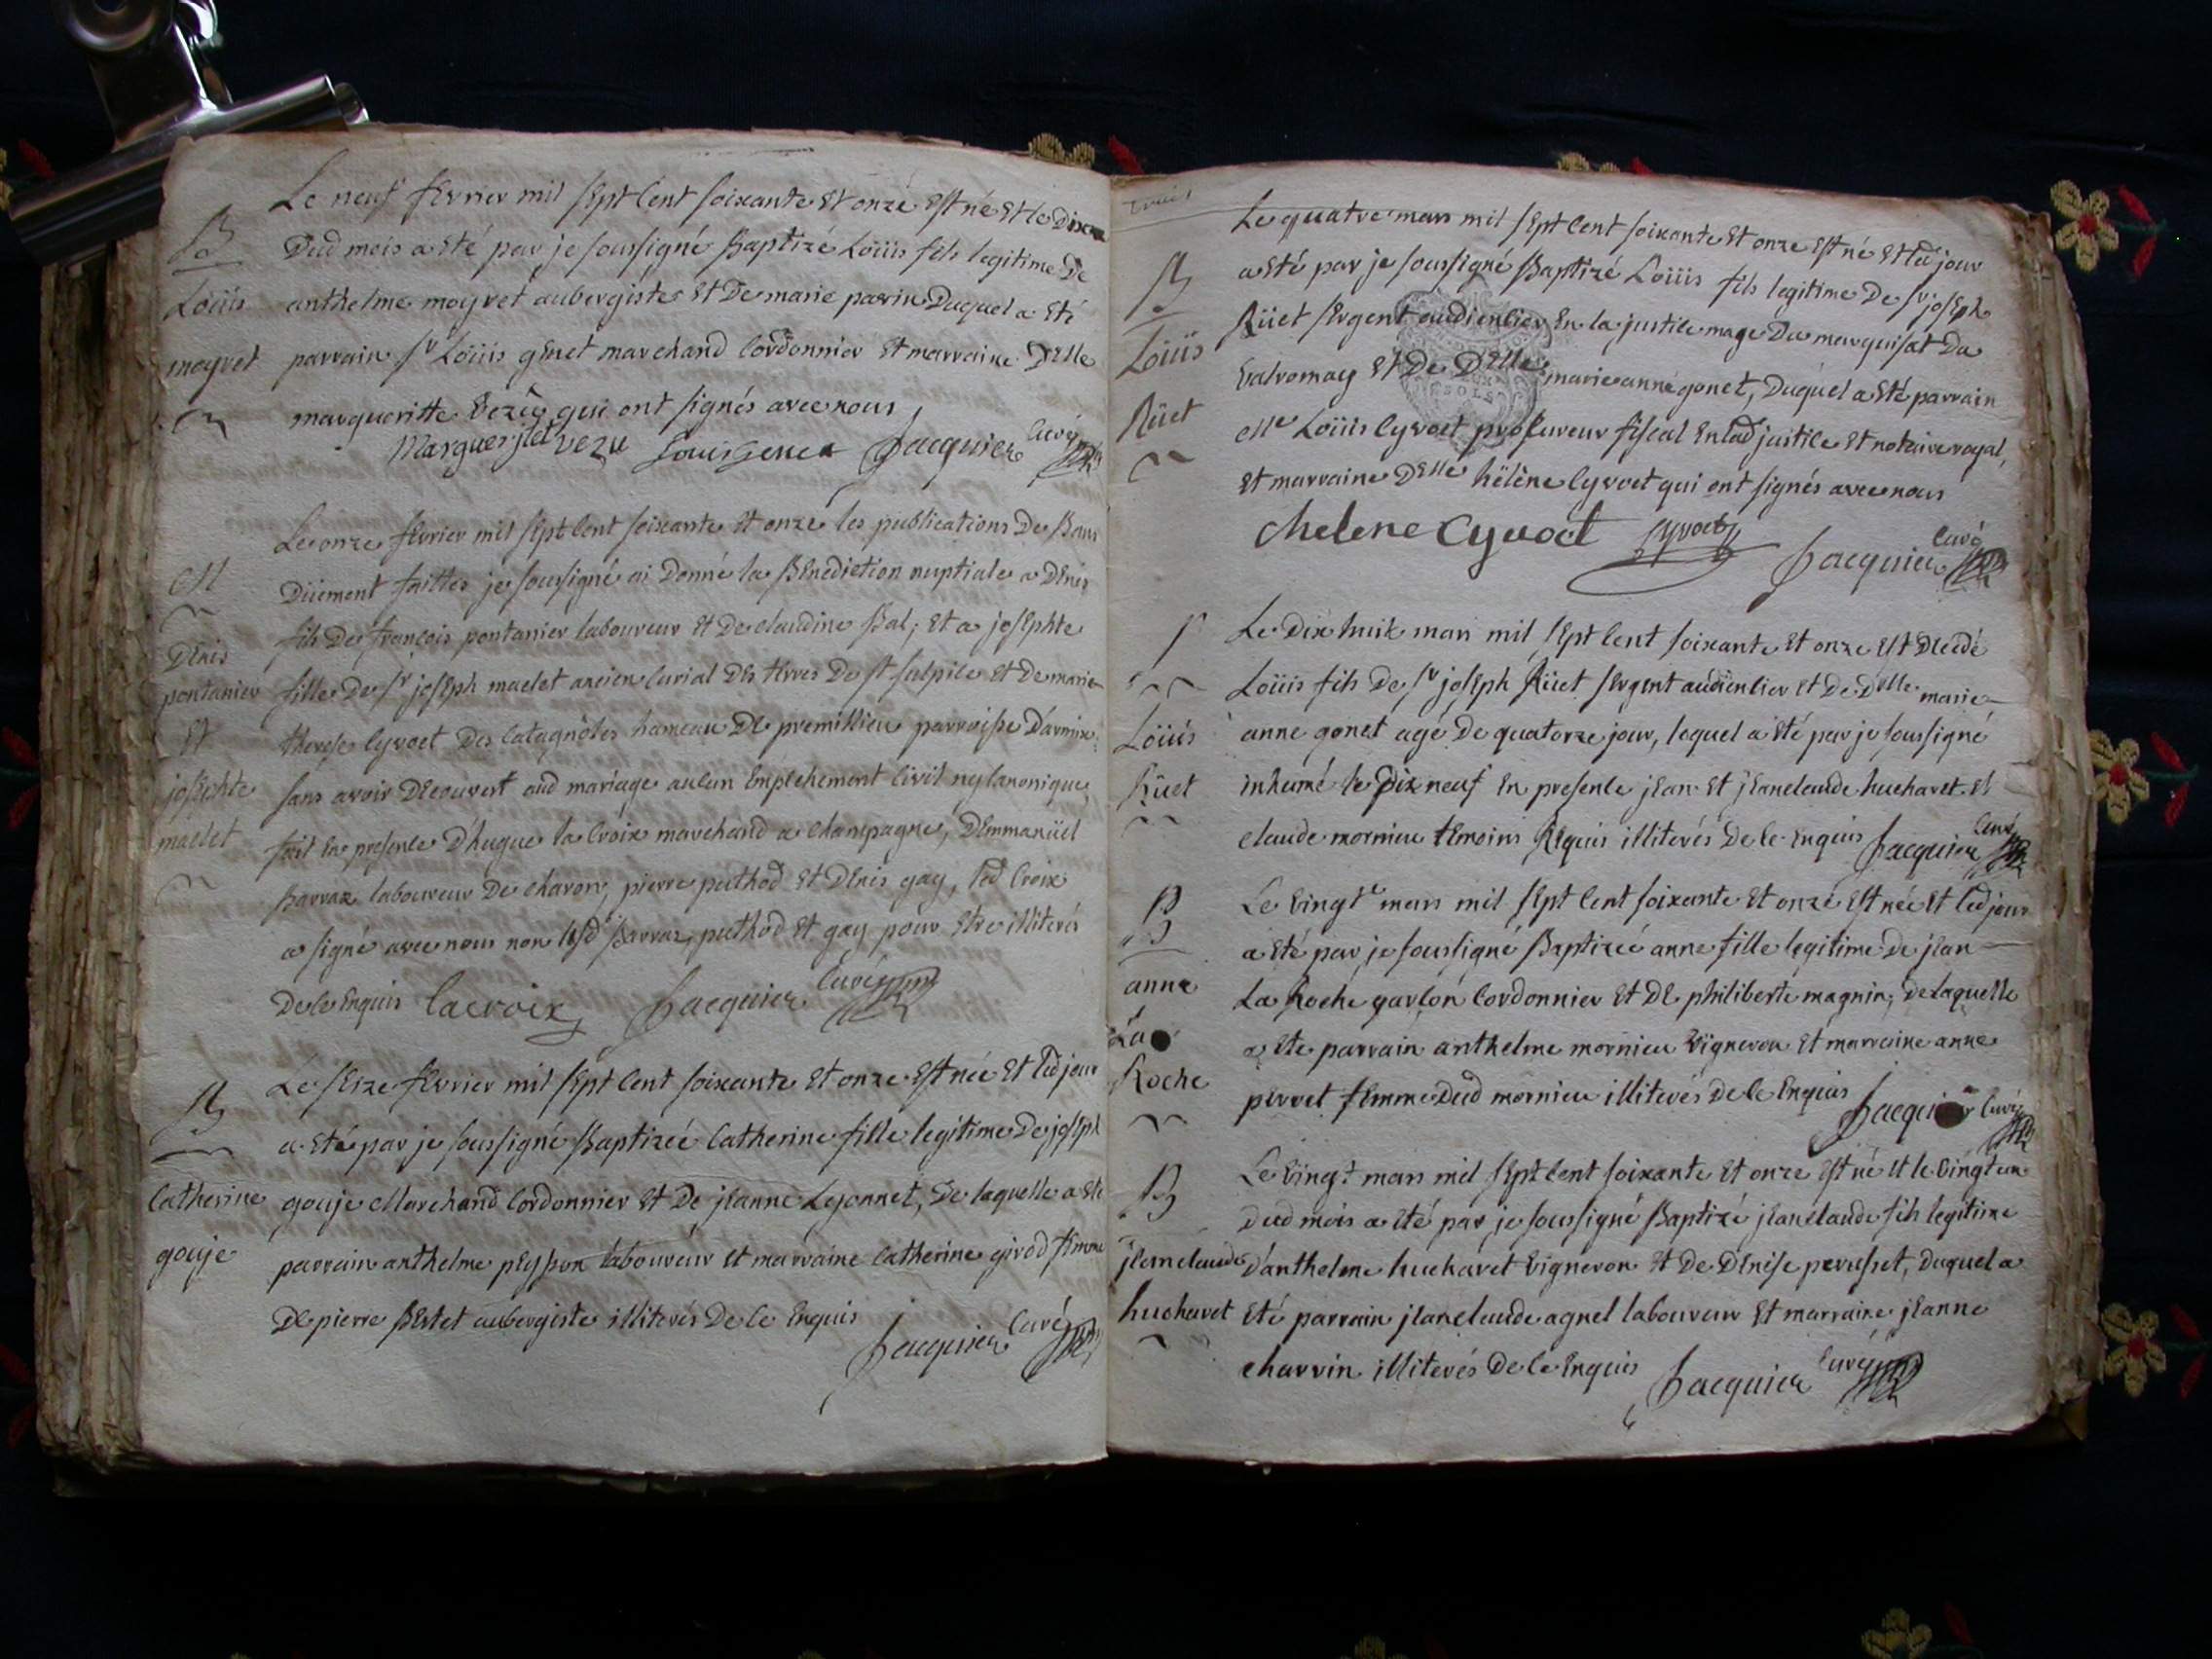 Le neuf fevrier mil sept cent soixante et onze est né et le dix
B
Dud mois a eté par je soussigné Baptizé Loüis fils legitime De
Loüis
anthelme moyret aubergiste et De marie parrin Duquel a eté
moyret
parrain Sr Loüis genet marchand Cordonnier et marraine Delle
margueritte Vezu qui ont signés avec nous
Marguerite vezu Louis Genet Jacquier Curé
Le onze fevrier mil sept Cent soixante et onze les publications De Bans
M
Düement faittes je soussigné ai Donné la Benediction nuptiale a Denis
fils De françois pontanier laboureur et De claudine Bal; et a josephte
Denis
pontanier
fille De Sr joseph maclet ancien Curial Des terres De st sulpice et De marie
et
therese Cyvoct Des Catagnoles hameau De premillieu parroisse D'armix
josephte
sans avoir Decouvert aud mariage aucun Empechement Civil ny Canonique
maclet
fait En presence D'hugue la Croix marchand a Champagne, D'Emmanüel
Barraz laboureur De charon, pierre puthod et Denis gay, led Croix
a signé avec nous non lesd Barraz, puthod et gay pour etre illiterés
De ce Enquis Lacroix Jacquier Curé
Le seize fevrier mil sept Cent soixante et onze est née et led jour
B
a eté par je soussigné Baptizée Catherine fille legitime De joseph
Catherine
gouje Marchand Cordonnier et De jeanne Leyonnet, De laquelle a eté
gouje
parrain anthelme peysson laboureur et marraine Catherine girod femme
De pierre Bertet aubergiste illiterés De Ce Enquis
Jacquier Curé
Le quatre mars mil sept Cent soixante et onze est né et led jour
B
a eté par je soussigné Baptizé Loüis fils legitime De Sr joseph
Loüis
Rüet Sergent audiencier En la justice mage Du marquisat Du
Valromay et De Delle marie anne gonet, Duquel a eté parrain
Rüet
Me Loüis Cyvoct procureur fiscal En lad justice et notaire royal,
et marraine Delle hélène Cyvoct qui ont signés avec nous
helene Cyvoct Cyvoct Jacquier Curé
Le Dix huit mars mil sept Cent soixante et onze est Decedé
Loüis fils De Sr joseph Rüet Sergent audiencier et De Delle marie
Loüis
anne gonet agé De quatorze jour, lequel a eté par je soussigné
Rüet
inhumé le Dix neuf En presence jean et jeanclaude huchavet et
claude mornieu temoins Requis illiterés De Ce Enquis Jacquier Curé
Le Vingt mars mil sept Cent soixante et onze est née et led jour
B
a eté par je soussigné Baptizée anne fille legitime De jean
anne
La Roche garlon Cordonnier et De philiberte magnin, De laquelle
La
a eté parrain anthelme mornieu Vigneron et marraine anne
Roche
perret femme Dud mornieu illiterés De Ce Enquis
Jacquier Curé
Le Vingt mars mil sept Cent soixante et onze est né et le Vingt un
B
Dud mois a eté par je soussigné Baptizé jeanclaude fils legitime
jeanclaude
D'anthelme huchavet Vigneron et De Denise perusset, Duquel a
huchavet
eté parrain jeanclaude agnel laboureur et marraine jeanne
charvin illiterés De Ce Enquis Jacquier Curé